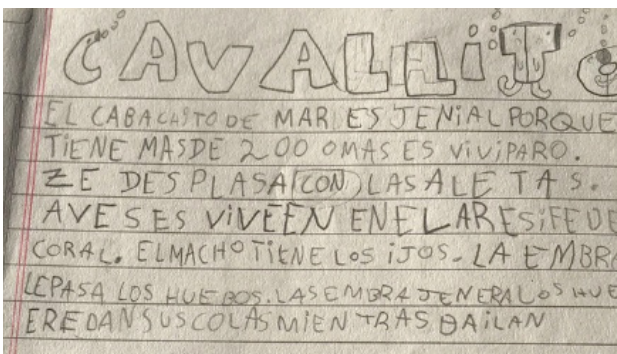 CAVALLITO
EL CABACHSTO DE MAR ES JENIAL PORQUE
TIENE MASDE 200 OMAS ES VIVIPARO.
ZE DESPLASA (CON) LAS ALETAS.
AVESES VIVEEN EN EL ARESIFE DE
CORAL. EL MACHO TIENE LOS IJOS. LA EMBRA
LEPASA LOS HUEBOS. LAS EMBRA JENERA LOS HUE
EREDAN SUS COLAS MIENTRAS BAILAN